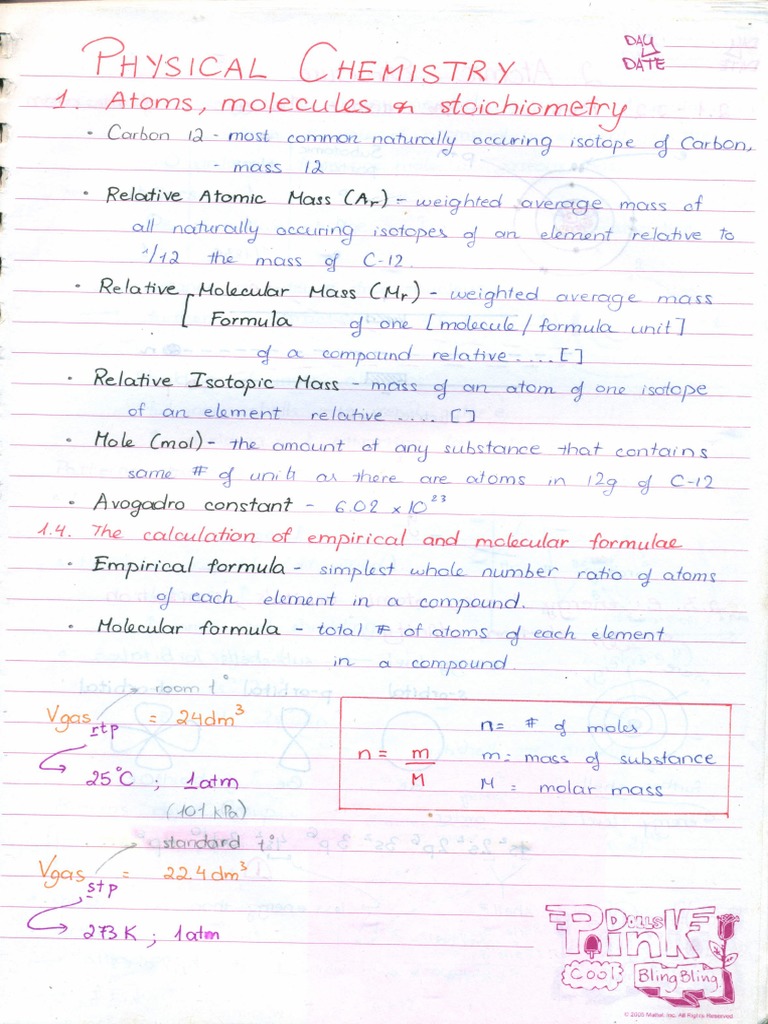 DAY
DATE
PHYSICAL CHEMISTRY
1. Atoms, molecules & stoichiometry
• Carbon 12 - most common naturally occuring isotope of Carbon,
- mass 12
• Relative Atomic Mass (Ar) - weighted average mass of
all naturally occuring isotopes of an element relative to
1/12 the mass of C-12.
• Relative Molecular Mass (Mr) - weighted average mass
[ Formula of one [molecule/formula unit]
of a compound relative .... []
• Relative Isotopic Mass - mass of an atom of one isotope
of an element relative .... []
• Mole (mol) - the amount of any substance that contains
same # of units as there are atoms in 12g of C-12
• Avogadro constant - 6.02 × 10²³
1.4. The calculation of empirical and molecular formulae
• Empirical formula - simplest whole number ratio of atoms
of each element in a compound.
• Molecular formula - total # of atoms of each element
in a compound.
room t°
Vgas rtp = 24dm³
25°C ; 1atm
(101 kPa)
n = m/M
n = # of moles
m = mass of substance
M = molar mass
standard t°
Vgas stp = 22.4dm³
273K ; 1atm
DOLLS
PINK
Cool
Bling Bling
© 2005 Mattel, Inc. All Rights Reserved